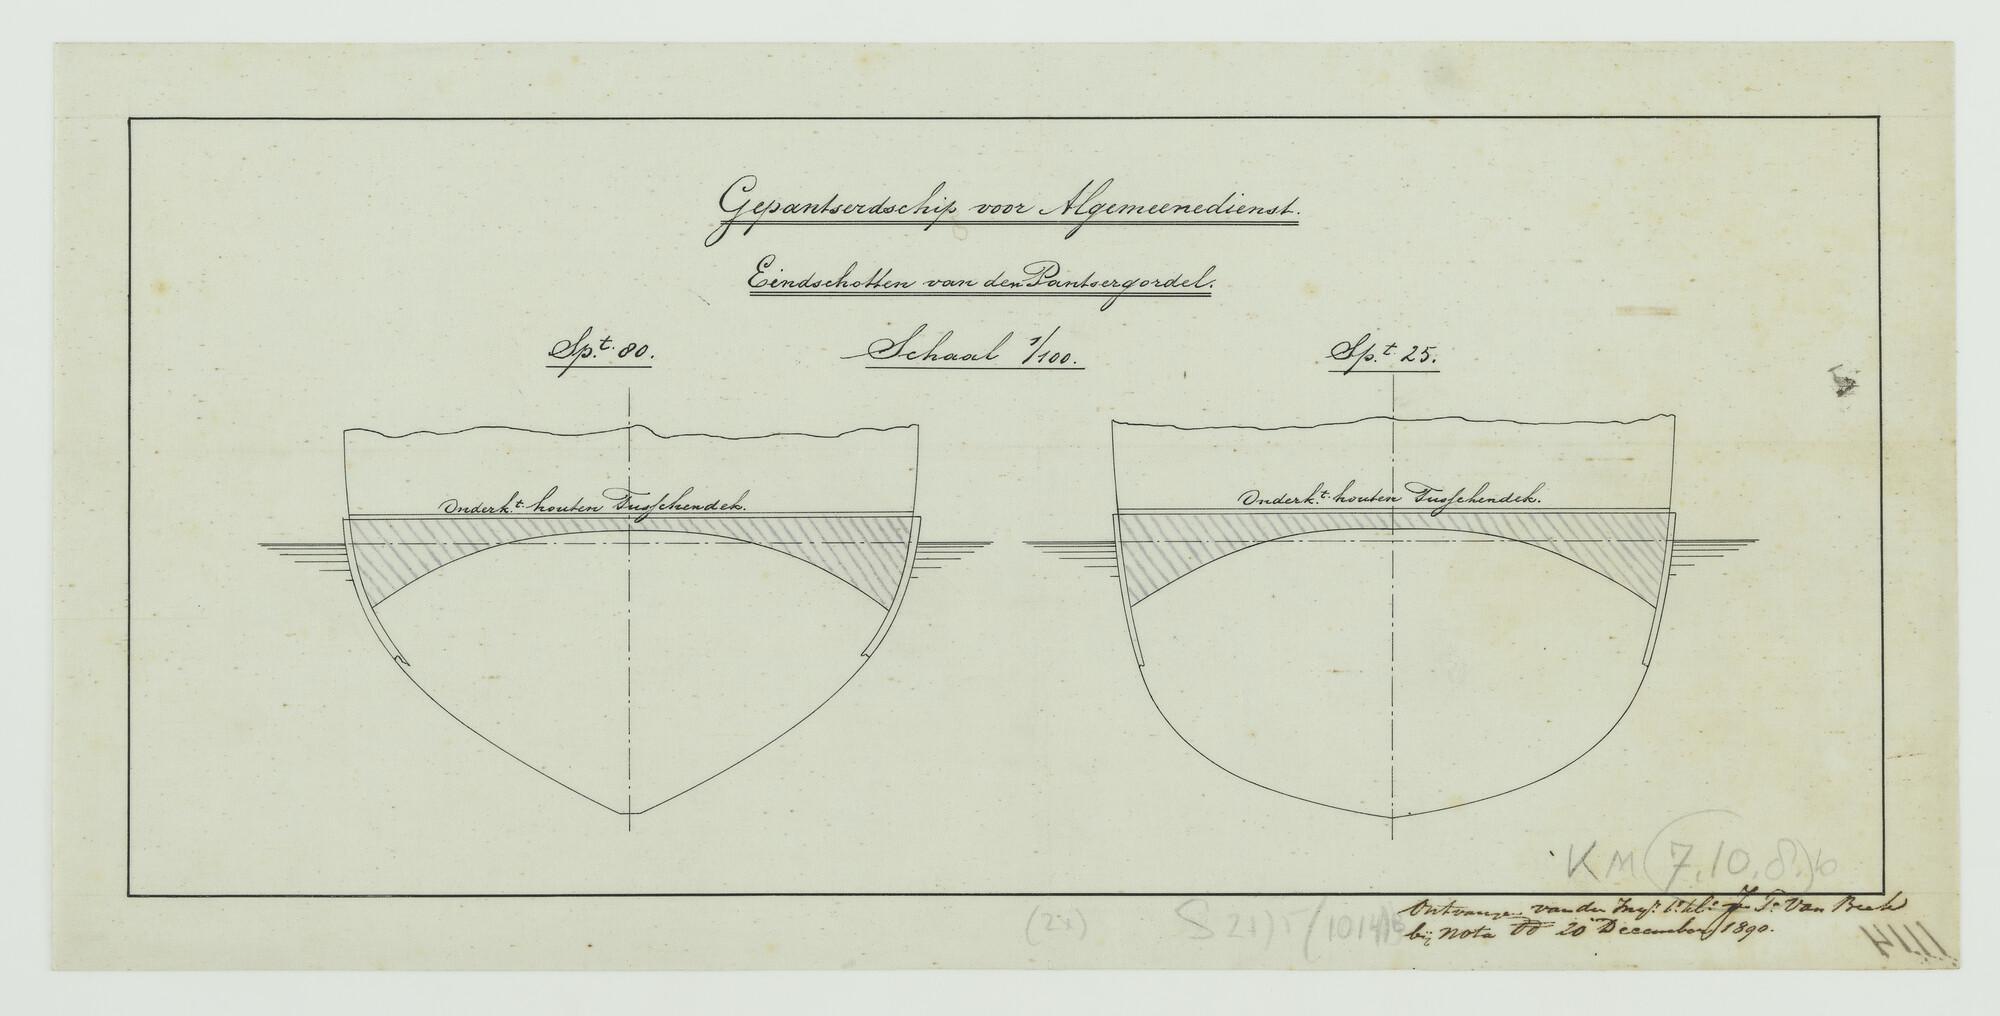 Gepantserdschip voor Algemeenedienst.
Eindschotten van den Pantsergordel.
Sp.t 80.
Schaal 1/100.
Sp.t 25.
Onderk.t houten Tusschendek.
Onderk.t houten Tusschendek.
KM (7.10.8.)b
(2x)
Ontvangen van den Ing.r Van Beek
bij nota dd 20 December 1890.